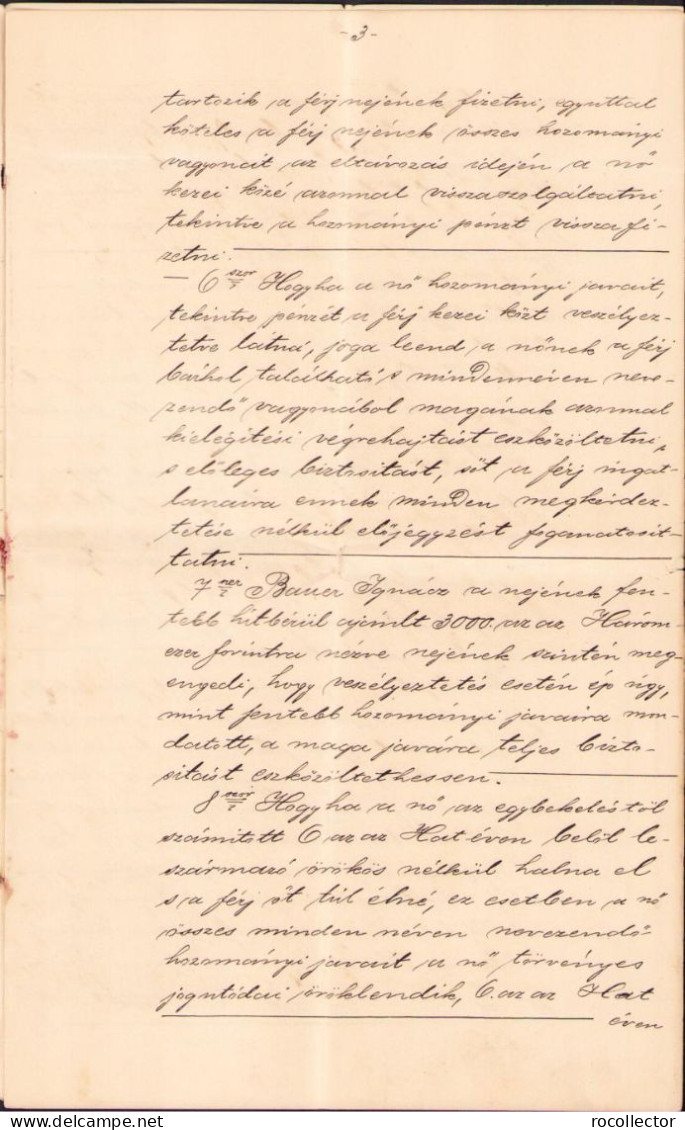 -3-
tartozik a férj nejének fizetni, egyuttal
köteles a férj nejének összes hozományi
vagyonait az eltávozás idején a nő
kezei közé azonnal visszaszolgáltatni,
tekintve a hozományi pénzt visszafi-
zetni.
— 6 szor Hogyha a nő hozományi javait,
tekintve pénzét a férj kezei közt veszélyez-
tetve látná, joga leend a nőnek a férj
bárhol található s mindennéven neve-
zendő vagyonából magának azonnal
kielégitési végrehajtást eszközöltetni,
s előleges biztositást, sőt a férj ingat-
lanaira ennek minden megkérdez-
tetése nélkül előjegyzést foganatosit-
tatni.
7 szer Bauer Ignácz a nejének fen-
tebb hitbérül ajánlt 3000. az az Három-
ezer forintra nézve nejének szintén meg-
engedi, hogy veszélyeztetés esetén ép úgy,
mint fentebb hozományi javaira mon-
datott, a maga javára teljes bizto-
sitást eszközöltethessen.
8 szor Hogyha a nő az egybekeléstől
számitott 6 az az Hat éven belől le-
származó örökös nélkül halna el
s a férj őt túl élné, ez esetben a nő
összes minden néven nevezendő
hozományi javait a nő törvényes
jogutódai öröklendik, 6. az az Hat
éven
delcampe.net
rocollector